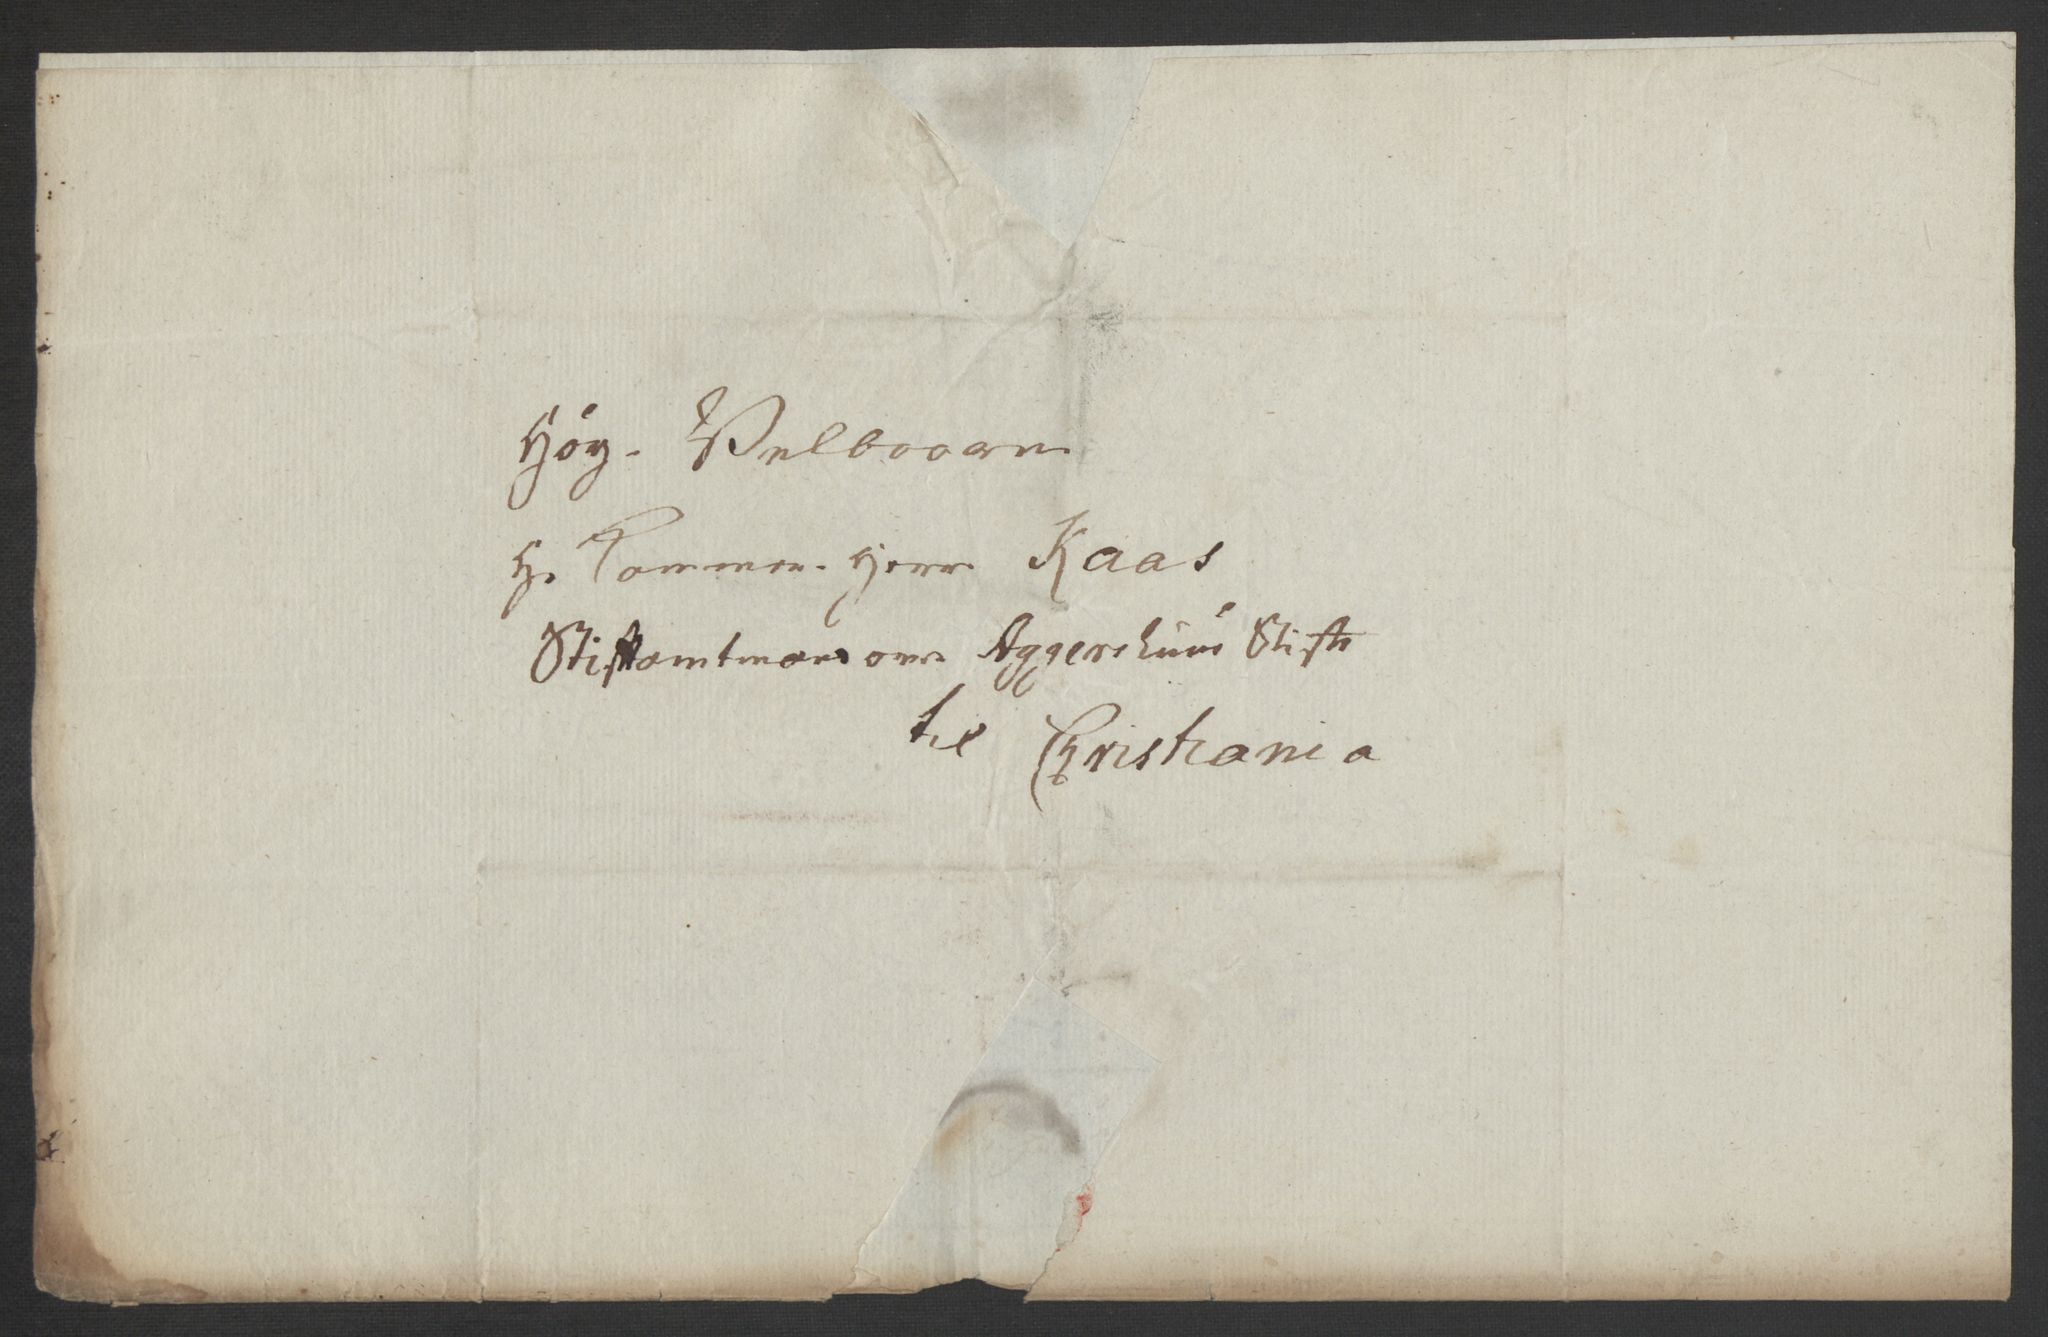 Høy-Velbaarne
H. Kammer-Herr Kaas
Stiftamtmand over Aggershuus Stift
til Christiania